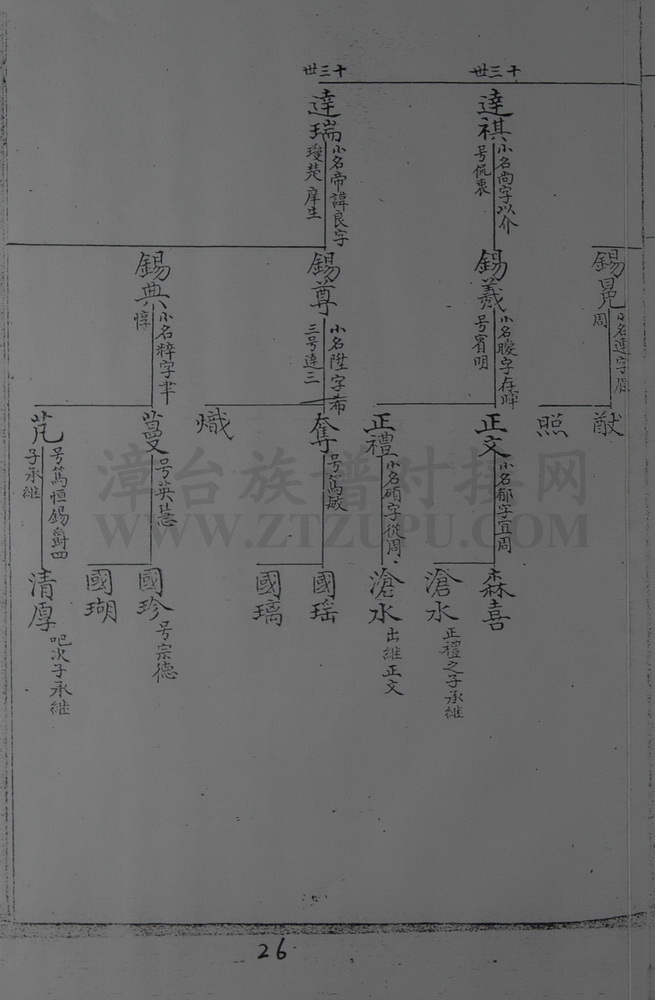 十三世
達祺
小名尚字以介
号侃衷
十三世
達瑞
小名帝諱良字
瓊楚庠生
錫晃
周
錫義
小名畯字存暉
号賓明
錫尊
小名陞字布
三号達三
錫典
小名粹字丰
惇
猷
照
正文
小名郁字宜周
正禮
小名碩字從周
奪
号篤敏
熾
蔓
号英慧
芃
号篤恒錫爵四
子承継
森喜
滄水
正禮之子承継
滄水
出継正文
國瑶
國璃
國珍
号宗德
國瑚
清厚
吧次子承継
漳台族谱对接网
WWW.ZTZUPU.COM
26